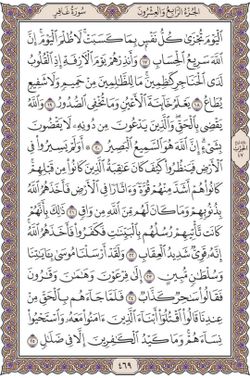 الجزء الرابع والعشرون سورة غافر
الْيَوْمَ تُجْزَىٰ كُلُّ نَفْسٍ بِمَا كَسَبَتْ لَا ظُلْمَ الْيَوْمَ إِنَّ
اللَّهَ سَرِيعُ الْحِسَابِ ١٧ وَأَنذِرْهُمْ يَوْمَ الْآزِفَةِ إِذِ الْقُلُوبُ
لَدَى الْحَنَاجِرِ كَاظِمِينَ مَا لِلظَّالِمِينَ مِنْ حَمِيمٍ وَلَا شَفِيعٍ
يُطَاعُ ١٨ يَعْلَمُ خَائِنَةَ الْأَعْيُنِ وَمَا تُخْفِي الصُّدُورُ ١٩ وَاللَّهُ
يَقْضِي بِالْحَقِّ وَالَّذِينَ يَدْعُونَ مِن دُونِهِ لَا يَقْضُونَ
بِشَيْءٍ إِنَّ اللَّهَ هُوَ السَّمِيعُ الْبَصِيرُ ٢٠ أَوَلَمْ يَسِيرُوا فِي
الْأَرْضِ فَيَنظُرُوا كَيْفَ كَانَ عَاقِبَةُ الَّذِينَ كَانُوا مِن قَبْلِهِمْ
كَانُوا هُمْ أَشَدَّ مِنْهُمْ قُوَّةً وَآثَارًا فِي الْأَرْضِ فَأَخَذَهُمُ اللَّهُ
بِذُنُوبِهِمْ وَمَا كَانَ لَهُم مِّنَ اللَّهِ مِن وَاقٍ ٢١ ذَٰلِكَ بِأَنَّهُمْ
كَانَت تَّأْتِيهِمْ رُسُلُهُم بِالْبَيِّنَاتِ فَكَفَرُوا فَأَخَذَهُمُ اللَّهُ
إِنَّهُ قَوِيٌّ شَدِيدُ الْعِقَابِ ٢٢ وَلَقَدْ أَرْسَلْنَا مُوسَىٰ بِآيَاتِنَا
وَسُلْطَانٍ مُّبِينٍ ٢٣ إِلَىٰ فِرْعَوْنَ وَهَامَانَ وَقَارُونَ
فَقَالُوا سَاحِرٌ كَذَّابٌ ٢٤ فَلَمَّا جَاءَهُم بِالْحَقِّ مِنْ
عِندِنَا قَالُوا اقْتُلُوا أَبْنَاءَ الَّذِينَ آمَنُوا مَعَهُ وَاسْتَحْيُوا
نِسَاءَهُمْ وَمَا كَيْدُ الْكَافِرِينَ إِلَّا فِي ضَلَالٍ ٢٥
٤٦٩